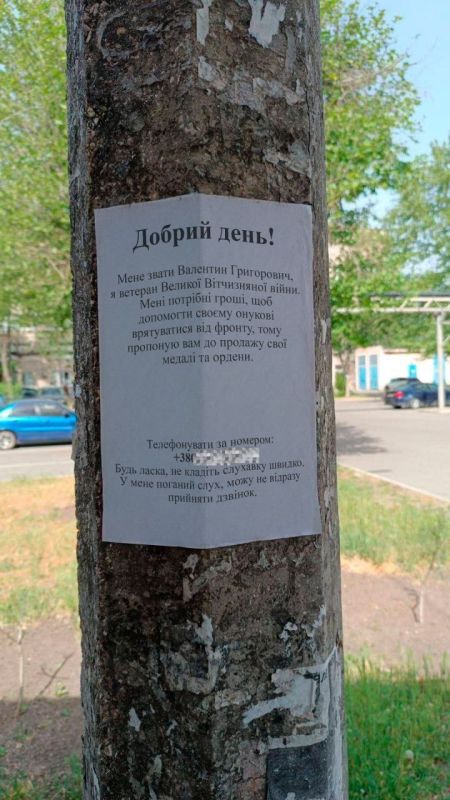 Добрий день!
Мене звати Валентин Григорович,
я ветеран Великої Вітчизияної війни.
Мені потрібні гроші, щоб
допомогти своєму онукові
врятуватися від фронту, тому
пропоную вам до продажу свої
медалі та ордени.
Телефонувати за номером:
+380
Будь ласка, не кладіть слухавку швидко.
У мене поганий слух, можу не відразу
прийняти дзвінок.